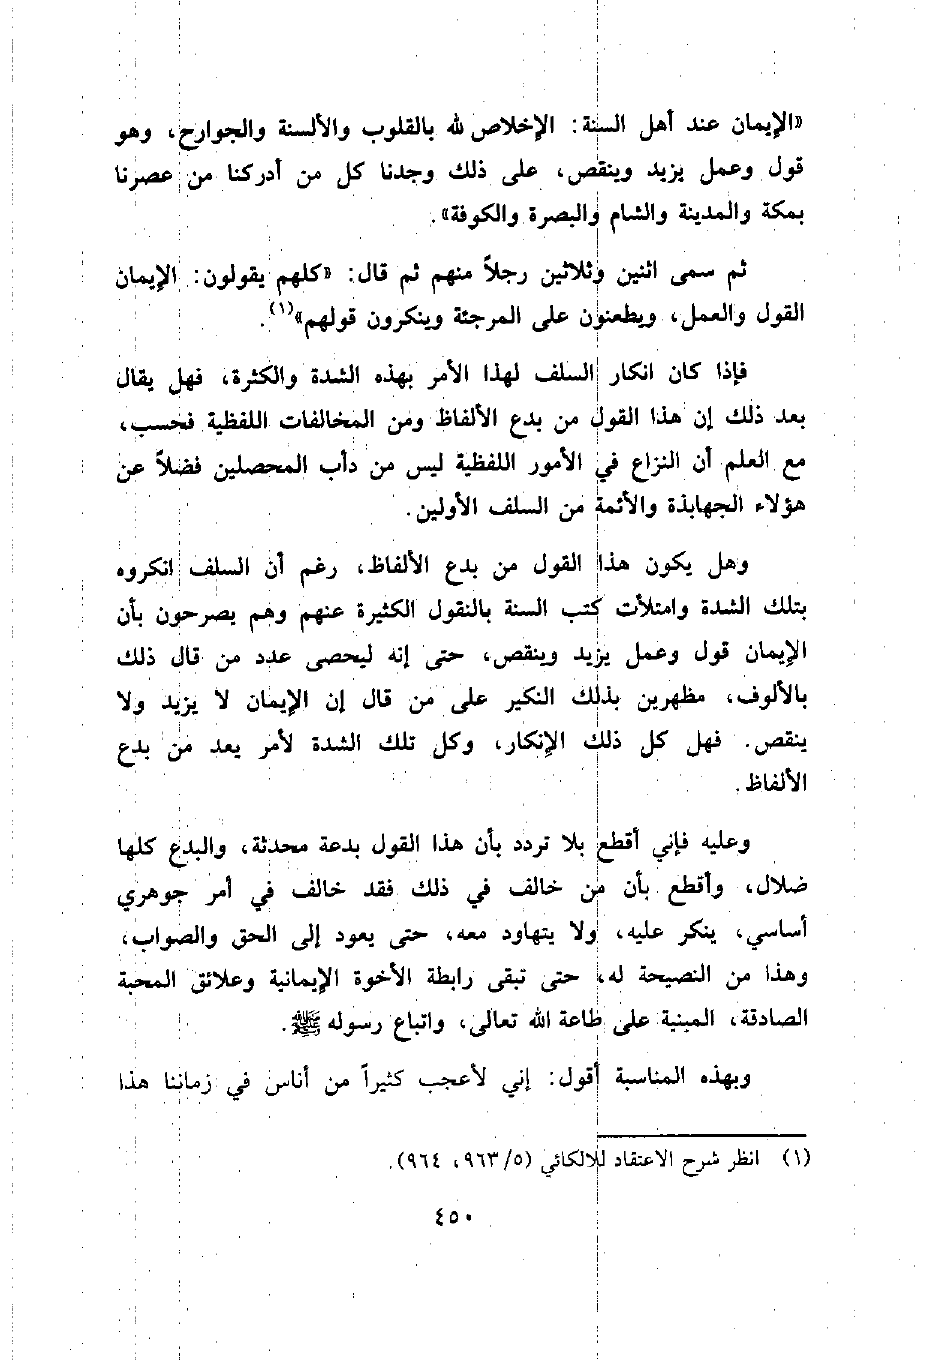 «الإيمان عند أهل السنة: الإخلاص لله بالقلوب والألسنة والجوارح، وهو
قول وعمل يزيد وينقص، على ذلك وجدنا كل من أدركنا من عصرنا
بمكة والمدينة والشام والبصرة والكوفة».
ثم سمى اثنين وثلاثين رجلاً منهم ثم قال: «كلهم يقولون: الإيمان
القول والعمل، ويطعنون على المرجئة وينكرون قولهم»(١).
فإذا كان انكار السلف لهذا الأمر بهذه الشدة والكثرة، فهل يقال
بعد ذلك إن هذا القول من بدع الألفاظ ومن المخالفات اللفظية فحسب،
مع العلم أن النزاع في الأمور اللفظية ليس من دأب المحصلين فضلاً عن
هؤلاء الجهابذة والأئمة من السلف الأولين.
وهل يكون هذا القول من بدع الألفاظ، رغم أن السلف انكروه
بتلك الشدة وامتلأت كتب السنة بالنقول الكثيرة عنهم وهم يصرحون بأن
الإيمان قول وعمل يزيد وينقص، حتى إنه ليحصى عدد من قال ذلك
بالألوف، مظهرين بذلك النكير على من قال إن الإيمان لا يزيد ولا
ينقص. فهل كل ذلك الإنكار، وكل تلك الشدة لأمر يعد من بدع
الألفاظ.
وعليه فإني أقطع بلا تردد بأن هذا القول بدعة محدثة، والبدع كلها
ضلال، وأقطع بأن من خالف في ذلك فقد خالف في أمر جوهري
أساسي، ينكر عليه، ولا يتهاود معه، حتى يعود إلى الحق والصواب،
وهذا من النصيحة له، حتى تبقى رابطة الأخوة الإيمانية وعلائق المحبة
الصادقة، المبنية على طاعة الله تعالى، واتباع رسوله ﷺ.
وبهذه المناسبة أقول: إني لأعجب كثيراً من أناس في زماننا هذا
(١) انظر شرح الاعتقاد لللالكائي (٥/ ٩٦٣، ٩٦٤).
٤٥٠